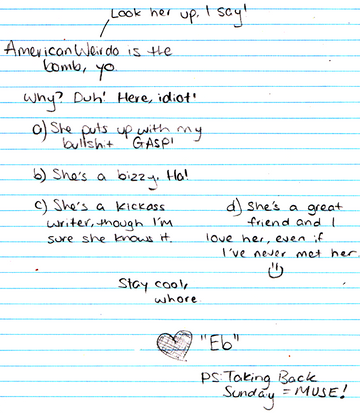 Look her up, I say!
AmericanWeirdo is the
bomb, yo.
Why? Duh! Here, idiot!
a) She puts up with my
bullsh.t GASP!
b) She's a bizzy. Ha!
c) She's a kickass
writer, though I'm
sure she knows it.
d) She's a great
friend and I
love her, even if
I've never met her.
Stay cool,
whore.
"Eb"
PS: Taking Back
Sunday = MUSE!